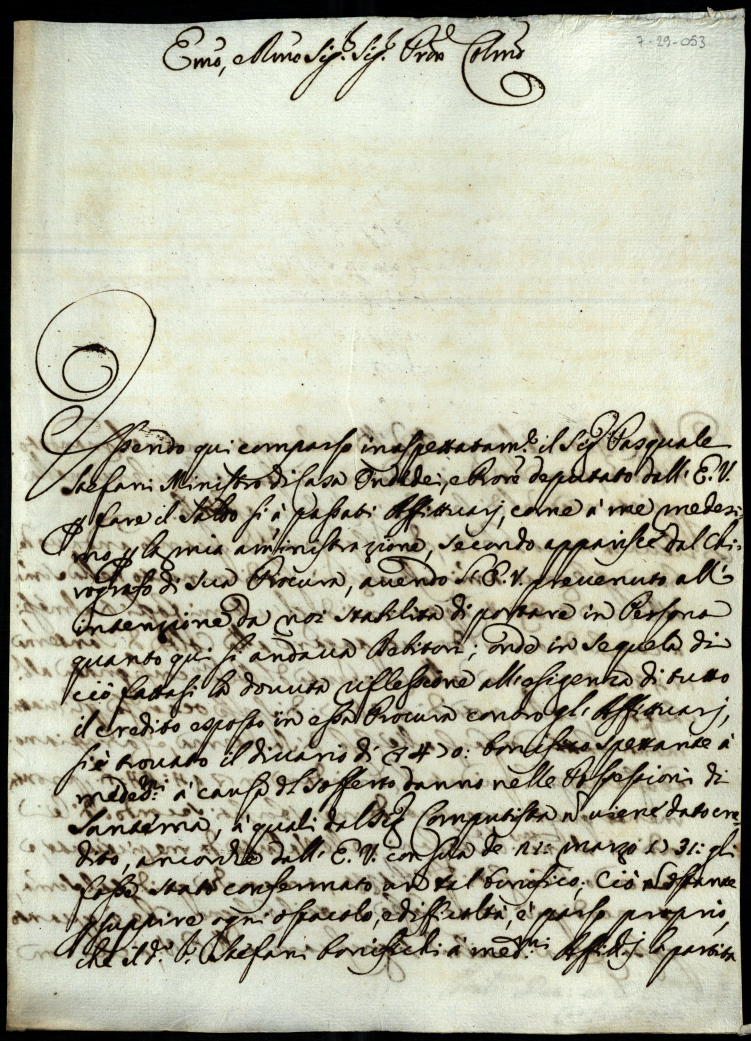 7-29-053
Emo, e Rmo Sig.r Sig.r Pron Colmo
Essendo qui comparso inaspettatam.te il Sig.r Pasquale
Stefani Ministro di Casa e Prore deputato dall' E. V.
p fare il Saldo sì à passati Affittuarj, come à me medesi-
mo p la mia aministrazione, secondo apparisce dal Chi-
rografo di sua Procura, avendo S. E. V. prevenuto all'
intenzione da noi stabilita di portare in Persona
quanto qui si andava Debitori; onde in sequela di
ciò fattasi la dovuta riflessione all'esigenza di tutto
il credito esposto in essa Procura contro gl' Affittuarj,
si è trovato il divario di bonifico spettante à
meded.i à causa del sofferto danno nelle Possessioni di
Santerma, à quali dal Sig.r Computista n viene dato cre-
dito, ancorche dall' E. V. con sua de 21: marzo 1731: gli
fosse stato confermato un tal bonifico; Ciò n ostante
p suppire ogni ostacolo, e difficoltà, è parso proprio,
che il d.o S.r Stefani bonifichi à med.mi Affitt.j la partita